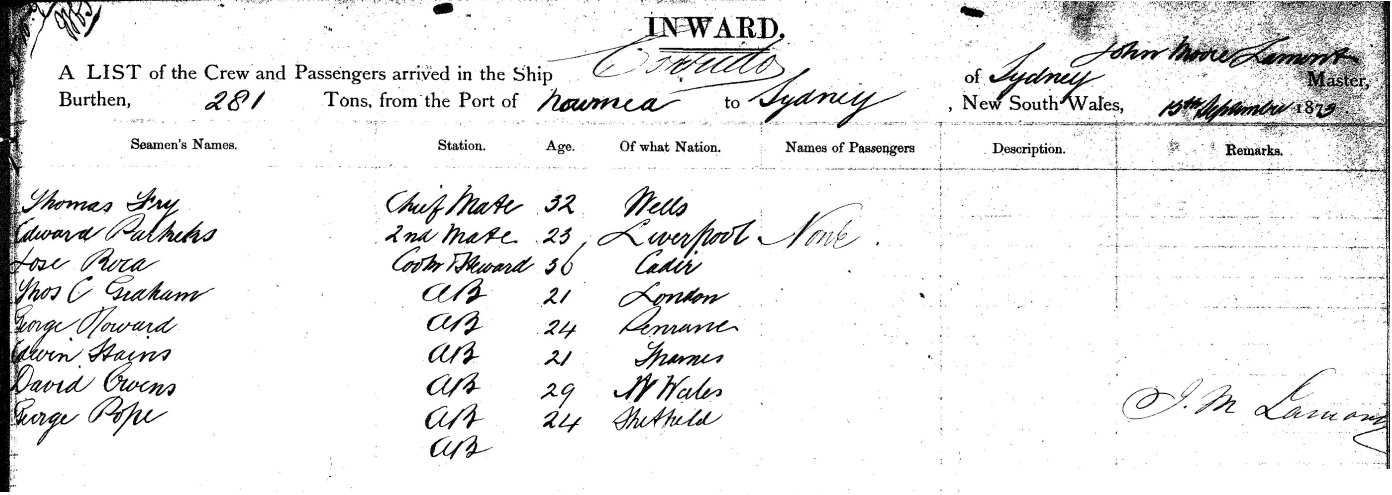 INWARD.
John Moore Lamont
A LIST of the Crew and Passengers arrived in the Ship of Sydney Master,
Burthen, 281 Tons, from the Port of Noumea to Sydney , New South Wales, 15th September 1873
Seamen's Names. Station. Age. Of what Nation. Names of Passengers Description. Remarks.
Thomas Fry Chief Mate 32 Wells
Edward 2nd Mate 23 Liverpool None
Jose Roca Cook & Steward 36 Cadiz
Thos C Graham AB 21 London
George Howard AB 24
Edwin Hains AB 21 Thames
David Owens AB 29 N Wales
George Pope AB 24 Sheffield
AB
J. M Lamont